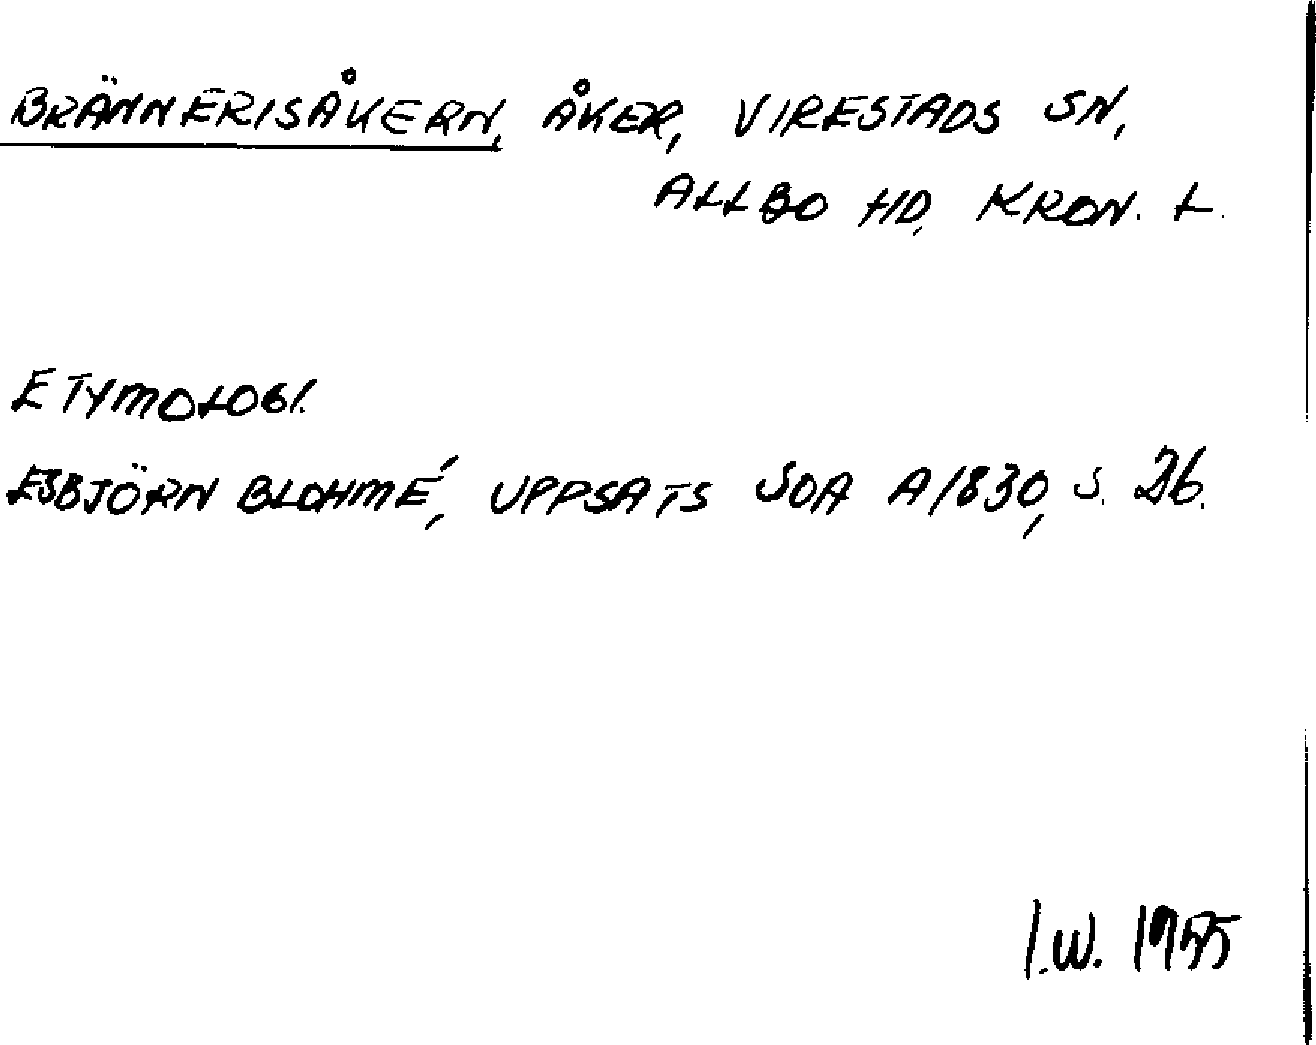 BRÄNNERISÅKERN, ÅKER, VIRESTADS SN,
ALLBO HD, KRON. L.
ETYMOLOGI.
ESBJÖRN BLOHMÉ, UPPSATS SOA A1830, S. 26.
I.W. 1955